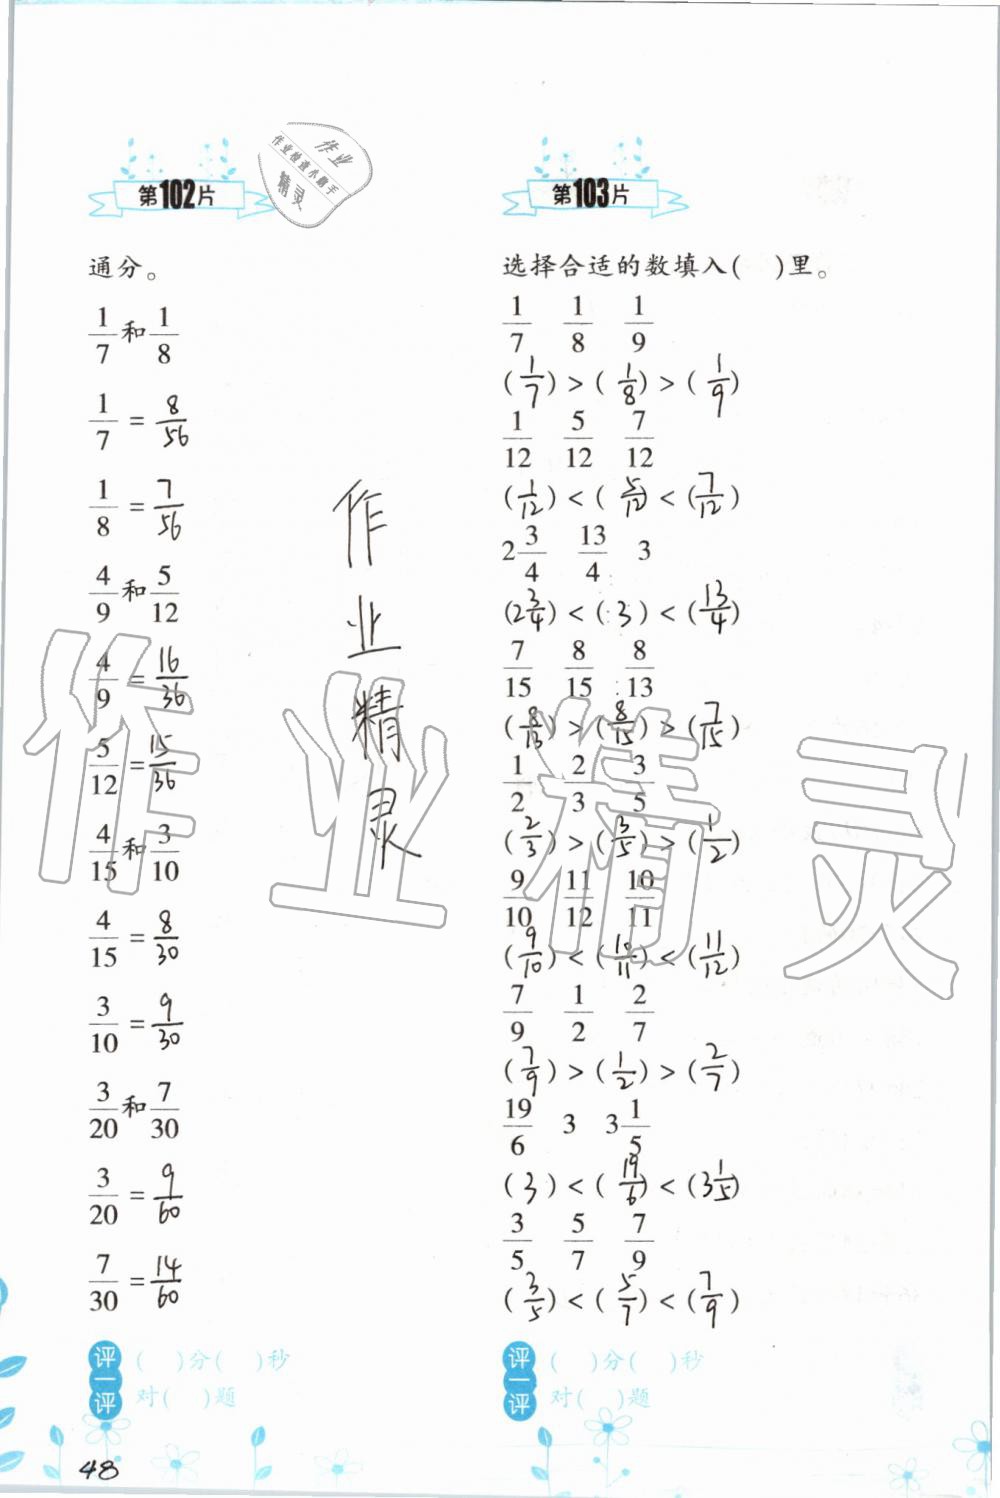 第102片
作业
作业检查小助手
精灵
通分。
1/7 和 1/8
1/7 = 8/56
1/8 = 7/56
4/9 和 5/12
4/9 = 16/36
5/12 = 15/36
4/15 和 3/10
4/15 = 8/30
3/10 = 9/30
3/20 和 7/30
3/20 = 9/60
7/30 = 14/60
评一评 ( )分( )秒
对( )题
48
作业精灵
第103片
选择合适的数填入( )里。
1/7 1/8 1/9
(1/7) > (1/8) > (1/9)
1/12 5/12 7/12
(1/12) < (5/12) < (7/12)
2 3/4 13/4 3
(2 3/4) < (3) < (13/4)
7/15 8/15 8/13
(8/13) > (8/15) > (7/15)
1/2 2/3 3/5
(2/3) > (3/5) > (1/2)
9/10 11/12 10/11
(9/10) < (10/11) < (11/12)
7/9 1/2 2/7
(7/9) > (1/2) > (2/7)
19/6 3 3 1/5
(3) < (19/6) < (3 1/5)
3/5 5/7 7/9
(3/5) < (5/7) < (7/9)
评一评 ( )分( )秒
对( )题
作业精灵